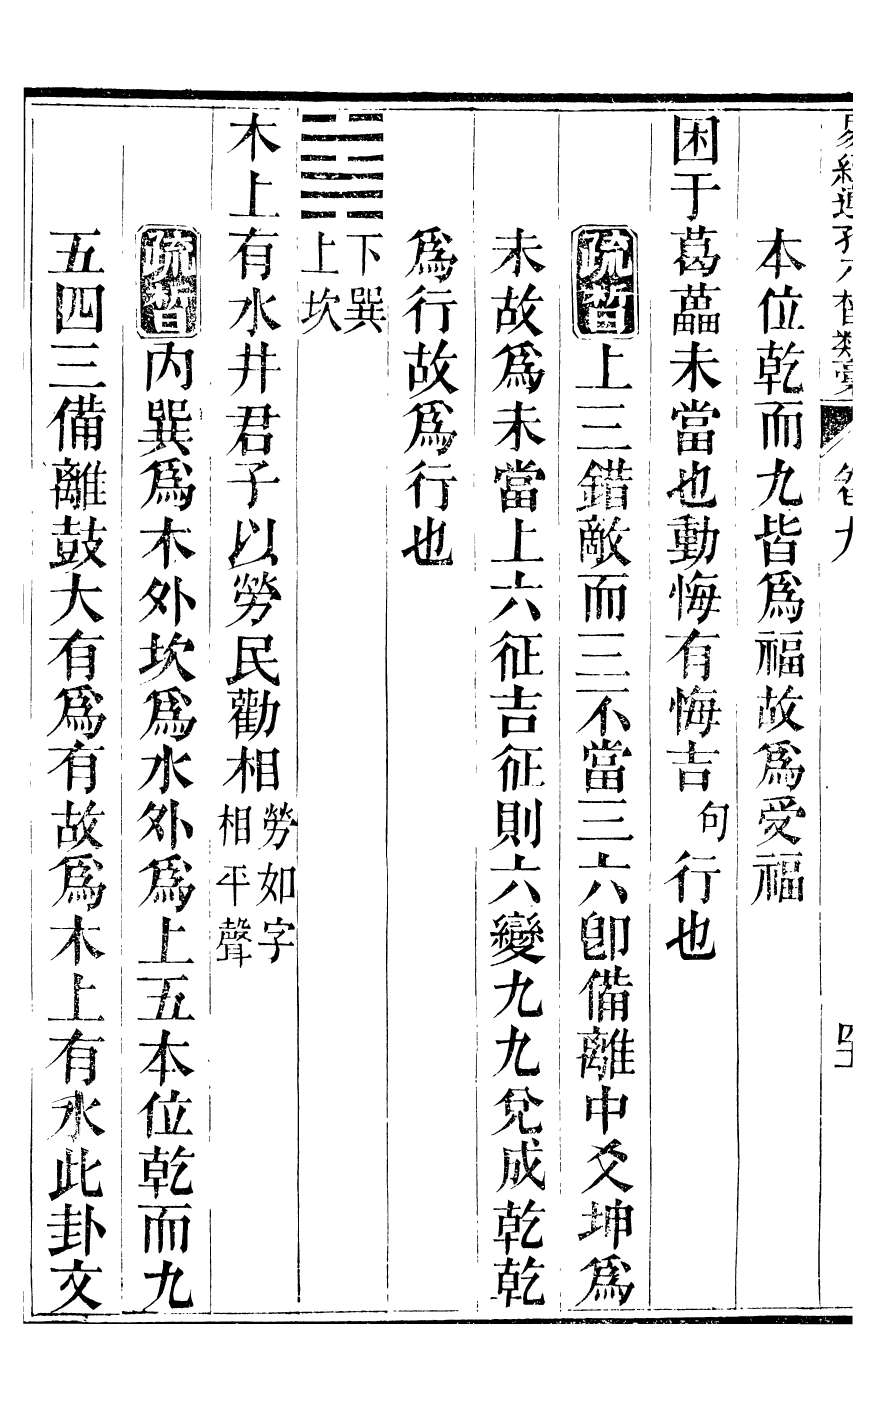 本位乾而九皆爲福故爲受福
困于葛藟未當也動悔有悔吉句行也
疏晳上三錯敵而三不當三六卽備離中爻坤爲
未故爲未當上六征吉征則六變九九兌成乾乾
爲行故爲行也
䷯下巽上坎
木上有水井君子以勞民勸相勞如字相平聲
疏晳內巽爲木外坎爲水外爲上五本位乾而九
五四三備離鼓大有爲有故爲木上有水此卦文